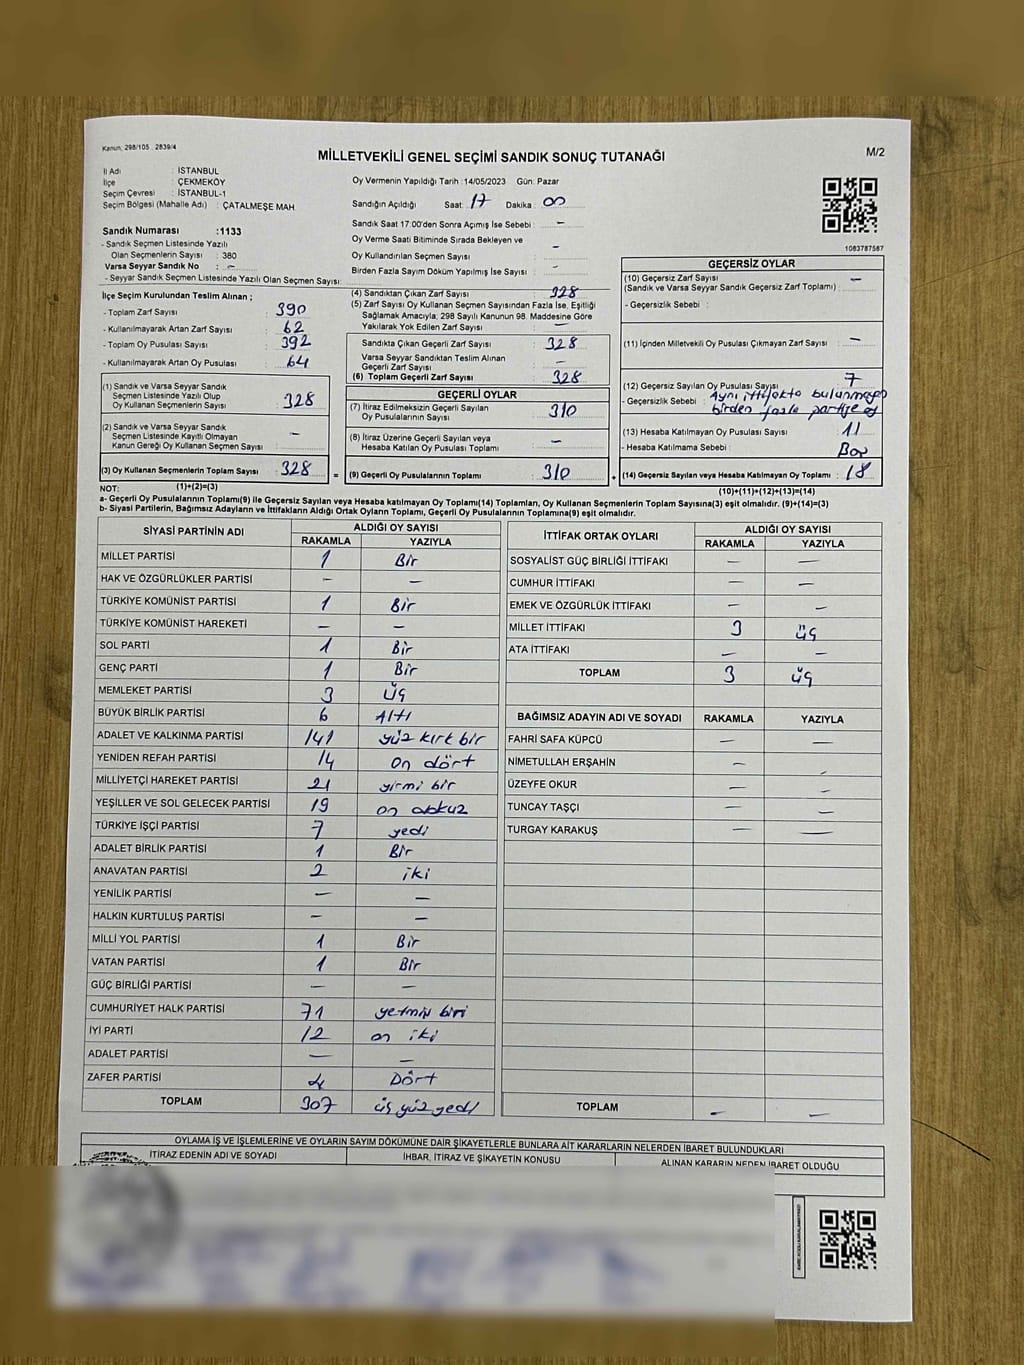 Kanun, 298/105 . 2839/4
MİLLETVEKİLİ GENEL SEÇİMİ SANDIK SONUÇ TUTANAĞI
M/2
İl Adı : İSTANBUL
İlçe : ÇEKMEKÖY
Seçim Çevresi : İSTANBUL-1
Seçim Bölgesi (Mahalle Adı) : ÇATALMEŞE MAH
Oy Vermenin Yapıldığı Tarih : 14/05/2023 Gün: Pazar
Sandığın Açıldığı Saat : 17 Dakika : 00
Sandık Saat 17:00'den Sonra Açımış İse Sebebi : –
Oy Verme Saati Bitiminde Sırada Bekleyen ve
Oy Kullandırılan Seçmen Sayısı : –
Birden Fazla Sayım Döküm Yapılmış İse Sayısı : –
Sandık Numarası :1133
- Sandık Seçmen Listesinde Yazılı
Olan Seçmenlerin Sayısı : 380
Varsa Seyyar Sandık No : –
- Seyyar Sandık Listesinde Yazılı Olan Seçmen Sayısı:
1083787587
İlçe Seçim Kurulundan Teslim Alınan ;
- Toplam Zarf Sayısı : 390
- Kullanılmayarak Artan Zarf Sayısı : 62
- Toplam Oy Pusulası Sayısı : 392
- Kullanılmayarak Artan Oy Pusulası : 64
(1) Sandık ve Varsa Seyyar Sandık
Seçmen Listesinde Yazılı Olup
Oy Kullanan Seçmenlerin Sayısı : 328
(2) Sandık ve Varsa Seyyar Sandık
Seçmen Listesinde Kayıtlı Olmayan
Kanun Gereği Oy Kullanan Seçmen Sayısı : –
(3) Oy Kullanan Seçmenlerin Toplam Sayısı : 328 =
(4) Sandıktan Çıkan Zarf Sayısı : 328
(5) Zarf Sayısı Oy Kullanan Seçmen Sayısından Fazla İse, Eşitliği
Sağlamak Amacıyla, 298 Sayılı Kanunun 98. Maddesine Göre
Yakılarak Yok Edilen Zarf Sayısı : –
Sandıkta Çıkan Geçerli Zarf Sayısı : 328
Varsa Seyyar Sandıktan Teslim Alınan
Geçerli Zarf Sayısı : –
(6) Toplam Geçerli Zarf Sayısı : 328
GEÇERLİ OYLAR
(7) İtiraz Edilmeksizin Geçerli Sayılan
Oy Pusulalarının Sayısı : 310
(8) İtiraz Üzerine Geçerli Sayılan veya
Hesaba Katılan Oy Pusulası Toplamı : –
(9) Geçerli Oy Pusulalarının Toplamı : 310 +
GEÇERSİZ OYLAR
(10) Geçersiz Zarf Sayısı : –
(Sandık ve Varsa Seyyar Sandık Geçersiz Zarf Toplamı)
- Geçersizlik Sebebi :
(11) İçinden Milletvekili Oy Pusulası Çıkmayan Zarf Sayısı : –
(12) Geçersiz Sayılan Oy Pusulası Sayısı : 7
- Geçersizlik Sebebi : Aynı ittifakta bulunmayan
birden fazla partiye oy
(13) Hesaba Katılmayan Oy Pusulası Sayısı : 11
- Hesaba Katılmama Sebebi : Boş
(14) Geçersiz Sayılan veya Hesaba Katılmayan Oy Toplamı : 18
NOT: (1)+(2)=(3)
(10)+(11)+(12)+(13)=(14)
a- Geçerli Oy Pusulalarının Toplamı(9) ile Geçersiz Sayılan veya Hesaba katılmayan Oy Toplamı(14) Toplamları, Oy Kullanan Seçmenlerin Toplam Sayısına(3) eşit olmalıdır. (9)+(14)=(3)
b- Siyasi Partilerin, Bağımsız Adayların ve İttifakların Aldığı Ortak Oyların Toplamı, Geçerli Oy Pusulalarının Toplamına(9) eşit olmalıdır.
SİYASİ PARTİNİN ADI ALDIĞI OY SAYISI
RAKAMLA YAZIYLA
MİLLET PARTİSİ 1 Bir
HAK VE ÖZGÜRLÜKLER PARTİSİ – –
TÜRKİYE KOMÜNİST PARTİSİ 1 Bir
TÜRKİYE KOMÜNİST HAREKETİ – –
SOL PARTİ 1 Bir
GENÇ PARTİ 1 Bir
MEMLEKET PARTİSİ 3 üç
BÜYÜK BİRLİK PARTİSİ 6 Altı
ADALET VE KALKINMA PARTİSİ 141 yüz kırk bir
YENİDEN REFAH PARTİSİ 14 on dört
MİLLİYETÇİ HAREKET PARTİSİ 21 yirmi bir
YEŞİLLER VE SOL GELECEK PARTİSİ 19 on dokuz
TÜRKİYE İŞÇİ PARTİSİ 7 yedi
ADALET BİRLİK PARTİSİ 1 Bir
ANAVATAN PARTİSİ 2 iki
YENİLİK PARTİSİ – –
HALKIN KURTULUŞ PARTİSİ – –
MİLLİ YOL PARTİSİ 1 Bir
VATAN PARTİSİ 1 Bir
GÜÇ BİRLİĞİ PARTİSİ – –
CUMHURİYET HALK PARTİSİ 71 yetmiş biri
İYİ PARTİ 12 on iki
ADALET PARTİSİ – –
ZAFER PARTİSİ 4 Dört
TOPLAM 307 üç yüz yedi
İTTİFAK ORTAK OYLARI ALDIĞI OY SAYISI
RAKAMLA YAZIYLA
SOSYALİST GÜÇ BİRLİĞİ İTTİFAKI – –
CUMHUR İTTİFAKI – –
EMEK VE ÖZGÜRLÜK İTTİFAKI – –
MİLLET İTTİFAKI 3 üç
ATA İTTİFAKI – –
TOPLAM 3 üç
BAĞIMSIZ ADAYIN ADI VE SOYADI RAKAMLA YAZIYLA
FAHRİ SAFA KÜPCÜ – –
NİMETULLAH ERŞAHİN – –
ÜZEYFE OKUR – –
TUNCAY TAŞÇI – –
TURGAY KARAKUŞ – –
TOPLAM – –
OYLAMA İŞ VE İŞLEMLERİNE VE OYLARIN SAYIM DÖKÜMÜNE DAİR ŞİKAYETLERLE BUNLARA AİT KARARLARIN NELERDEN İBARET BULUNDUKLARI
İTİRAZ EDENİN ADI VE SOYADI İHBAR, İTİRAZ VE ŞİKAYETİN KONUSU ALINAN KARARIN NEDEN İBARET OLDUĞU